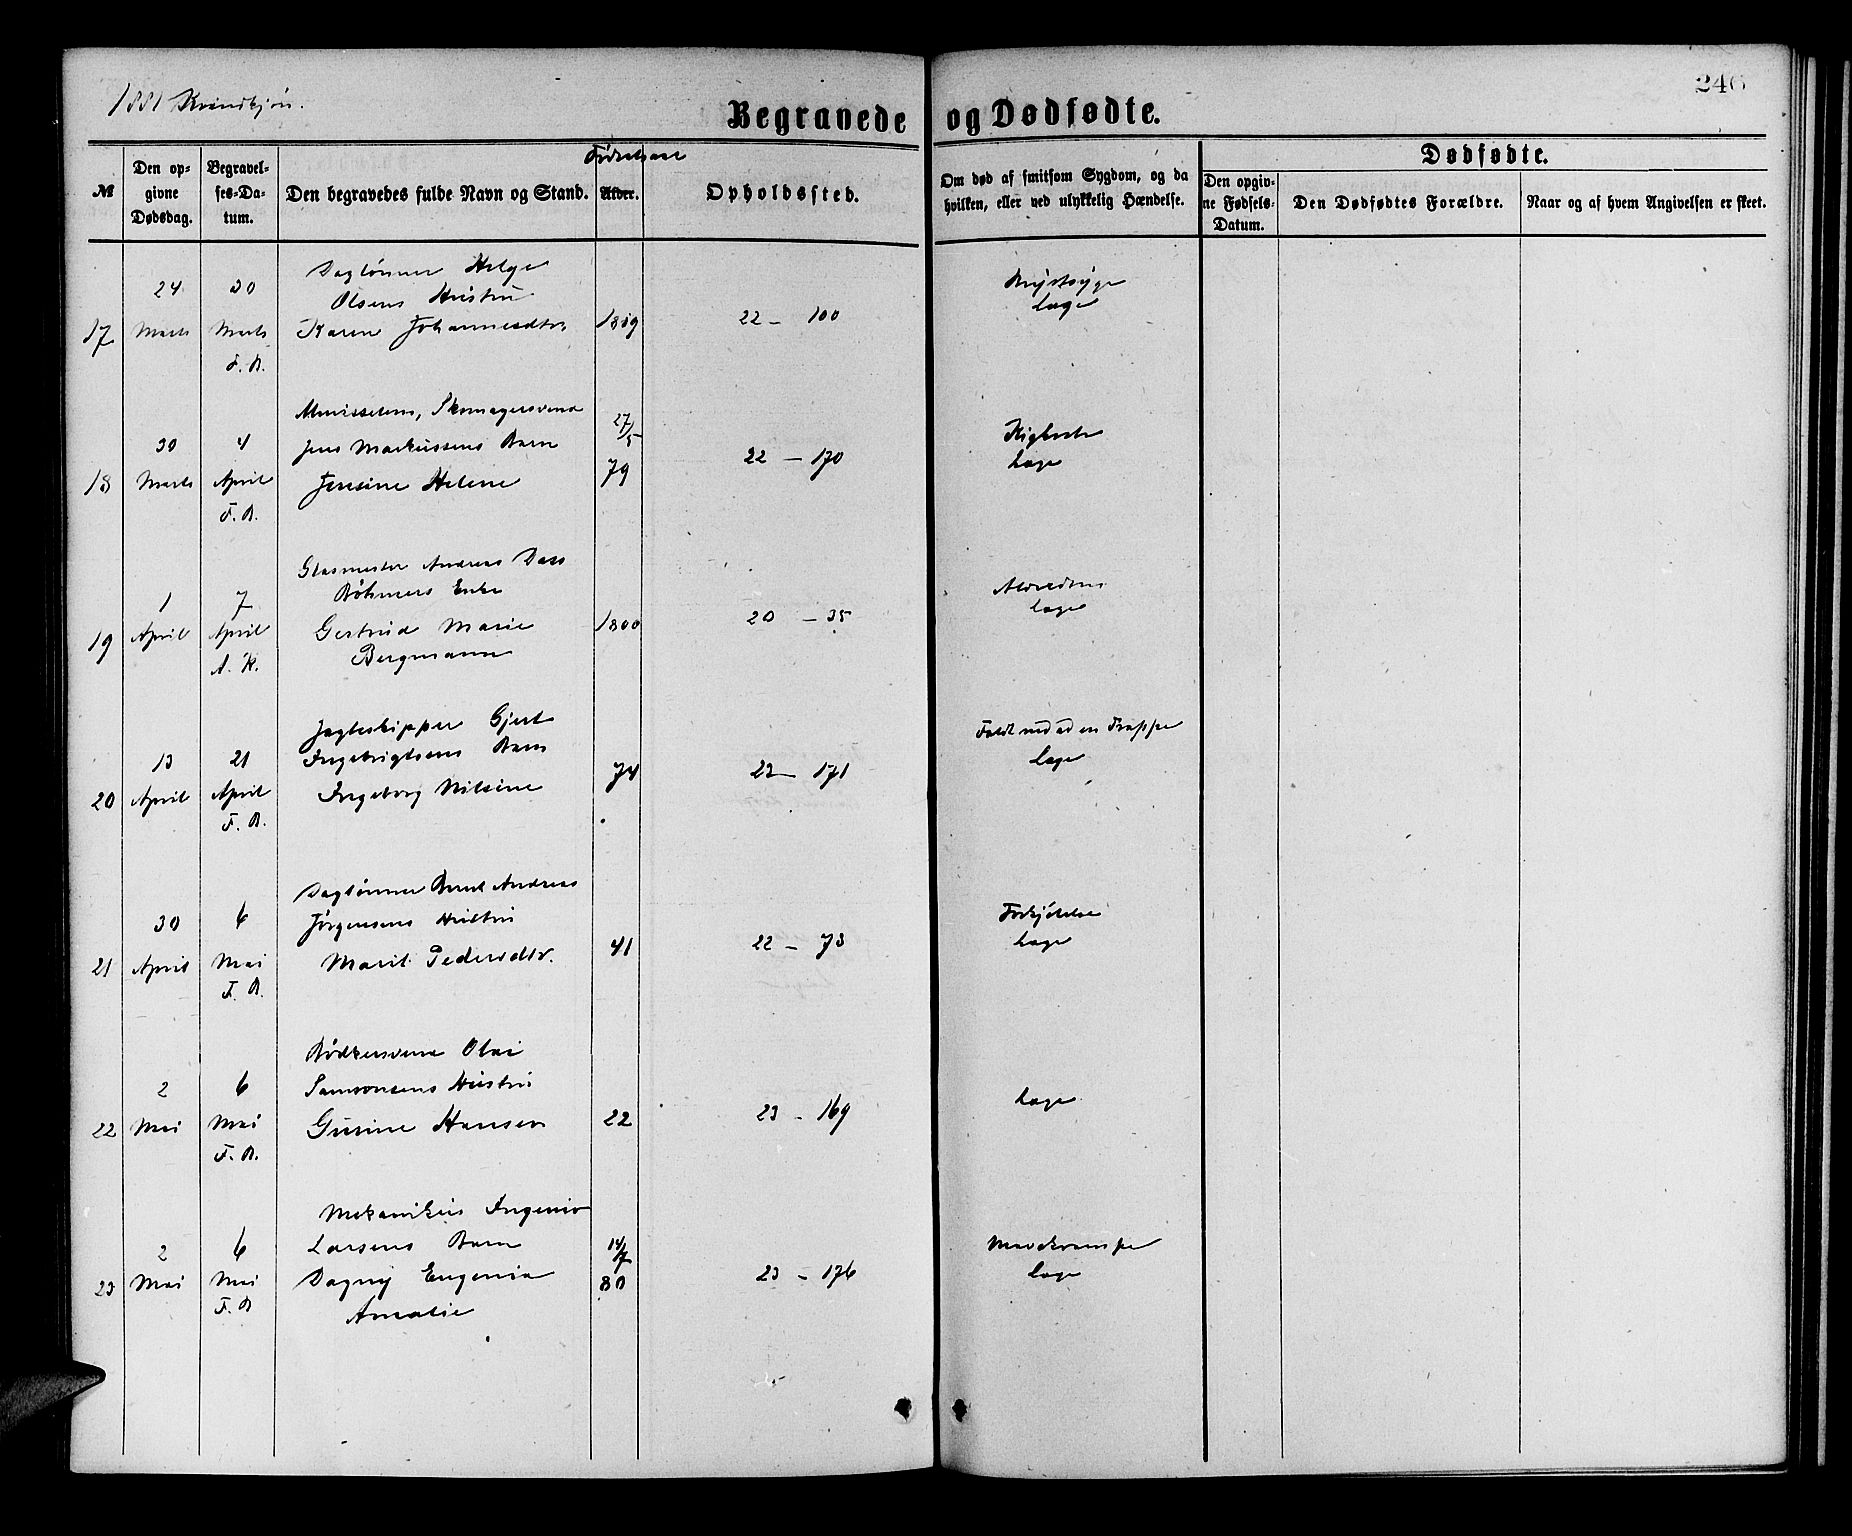 1881 Kvindkjøn.
246
Begravede og Dødfødte.
№
Den opgivne Dødsdag.
Begravelses-Datum.
Den begravedes fulde Navn og Stand.
Fødselsaar
Alder.
Opholdssted.
Om død af smitsom Sygdom, og da hvilken, eller ved ulykkelig Hændelse.
Dødfødte.
Den opgivne Fødsels-Datum.
Den Dødfødtes Forældre.
Naar og af hvem Angivelsen er skeet.
Daglønner Helge
24 30 Olsens Hustru Brystsyge
17 Marts Marts Karen Johannesdtr 1819 22 - 100 Læge
F. B.
Almisselem, Skomagersvend
30 4 Jens Markussens Barn 27/5 Kighoste
18 Marts April Jensine Helene 79 22 - 170 Læge
F. B.
Glasmester Andreas Dass
1 7 Bøhmers Enke Alderdom
19 April April Gertrud Marie 1800 20 - 35 Læge
A. K. Bergmann
Jagteskipper Gjert Faldt ned ad en Trappe
13 21 Ingebrigtsens Barn Læge
20 April April Ingeborg Nilsine 74 22 - 171
F. B.
Daglønner Bernt Andreas
30 6 Jørgensens Hustru Forkjølelse
21 April Mai Marit Pedersdtr. 41 22 - 73 Læge
F. B.
Bødkersvend Olai
2 6 Samsonsens Hustru Læge
22 Mai Mai Gurine Hansen 22 23 - 169
F. B.
Mekanikus Ingenior
2 6 Larsens Barn 14/7 Mavekrampe
23 Mai Mai Dagny Eugenia 80 23 - 176 Læge
F. B Amalie